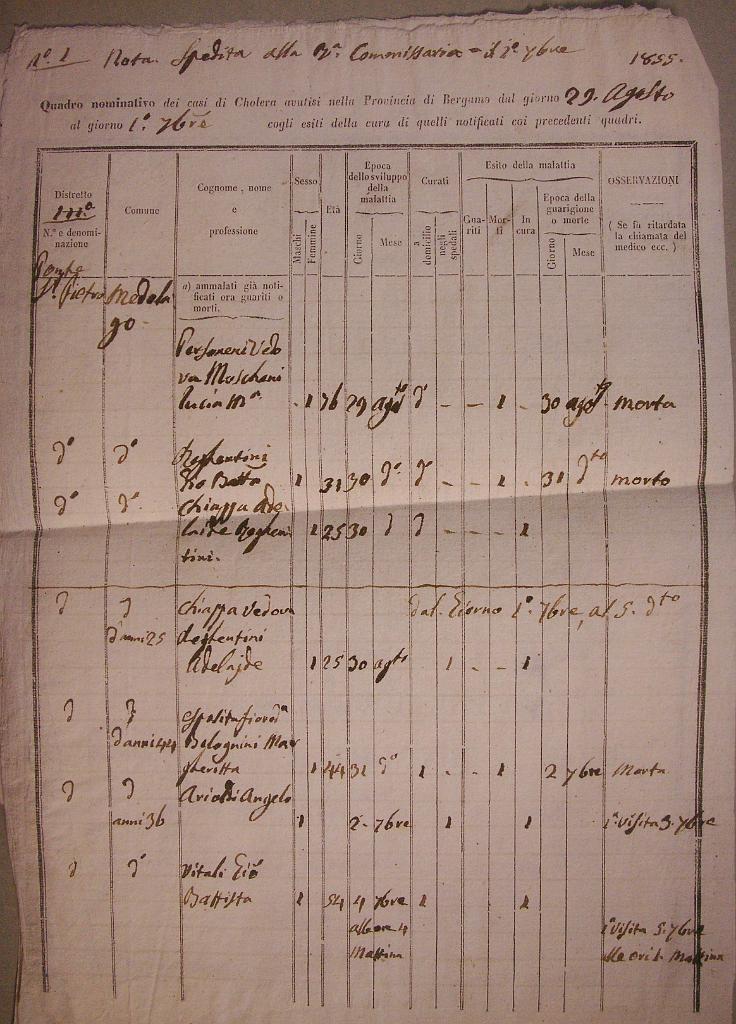 N.° 1 Nota Spedita alla Commissaria = il 1° 7bre 1855.
Quadro nominativo dei casi di Cholera avutisi nella Provincia di Bergamo dal giorno 29. Agosto
al giorno 1.° 7bre cogli esiti della cura di quelli notificati coi precedenti quadri.
Distretto
III.°
N.° e denomi-
nazione
Comune
Cognome, nome
e
professione
Sesso
Maschi
Femmine
Età
Epoca
dello sviluppo
della
malattia
Giorno
Mese
Curati
a
domicilio
negli
spedali
Esito della malattia
Gua-
riti
Mor-
ti
In
cura
Epoca della
guarigione
o morte
Giorno
Mese
OSSERVAZIONI
( Se fu ritardata
la chiamata del
medico ecc. )
a) ammalati già noti-
ficati ora guariti o
morti.
Ponte
S. Pietro Medola
go
Vedo
va Moscheni
Lucia M.a - 1 76 29 agto d° - - 1 - 30 agto morta
d° d°
Gio Batta 1 31 30 d° d° - - 1 - 31 dto morto
d° d° Chiappa Ade
laide 1 25 30 d d - - - 1
tini.
d d Chiappa vedova dal Giorno 1°. 7bre, al 5. dto
d'anni 25
Adelajde 1 25 30 agto 1 - - 1
d d
d'anni 44 Bolognini Mar
gheritta 1 44 31 d° 1 - - 1 2 7bre Morta
d d Angelo
anni 36 1 2 - 7bre 1 1 1a visita 3. 7bre
d d° Vitali Gio
Battista 1 54 4 7bre 1 1
alle ore 4 1a visita 5. 7bre
Mattina alle ori 1. Mattina